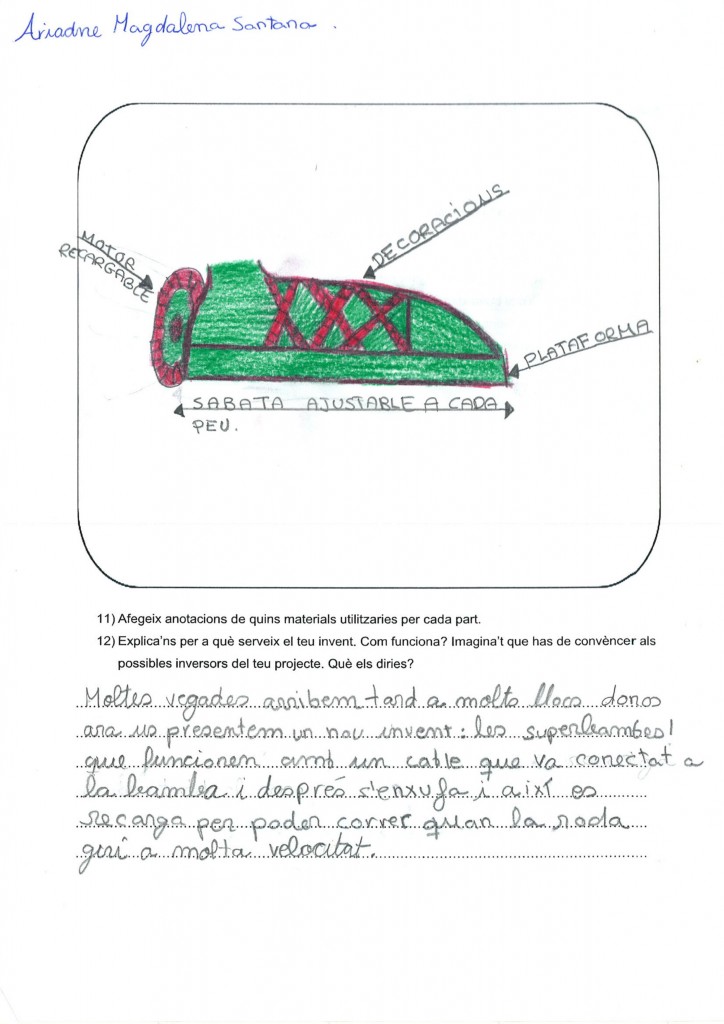 Ariadne Magdalena Santana.
DECORACIONS
MOTOR
RECARGABLE
PLATAFORMA
SABATA AJUSTABLE A CADA
PEU.
11) Afegeix anotacions de quins materials utilitzaries per cada part.
12) Explica'ns per a què serveix el teu invent. Com funciona? Imagina't que has de convèncer als
possibles inversors del teu projecte. Què els diries?
Moltes vegades arribem tard a molts llocs doncs
ara us presentem un nou invent: les superbambes!
que funcionen amb un cable que va conectat a
la bamba i després s'enxufa i així es
recarga per poder correr quan la roda
giri a molta velocitat.